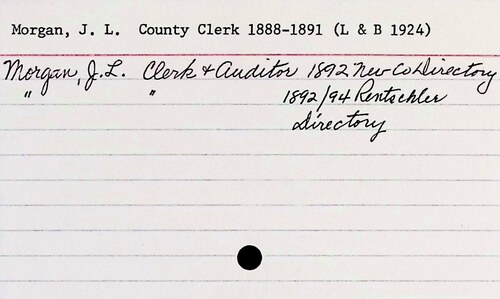 Morgan, J. L. County Clerk 1888-1891 (L & B 1924)
Morgan, J.L. Clerk & Auditor 1892 New Co Directory
" " 1892/94 Rentschler
Directory